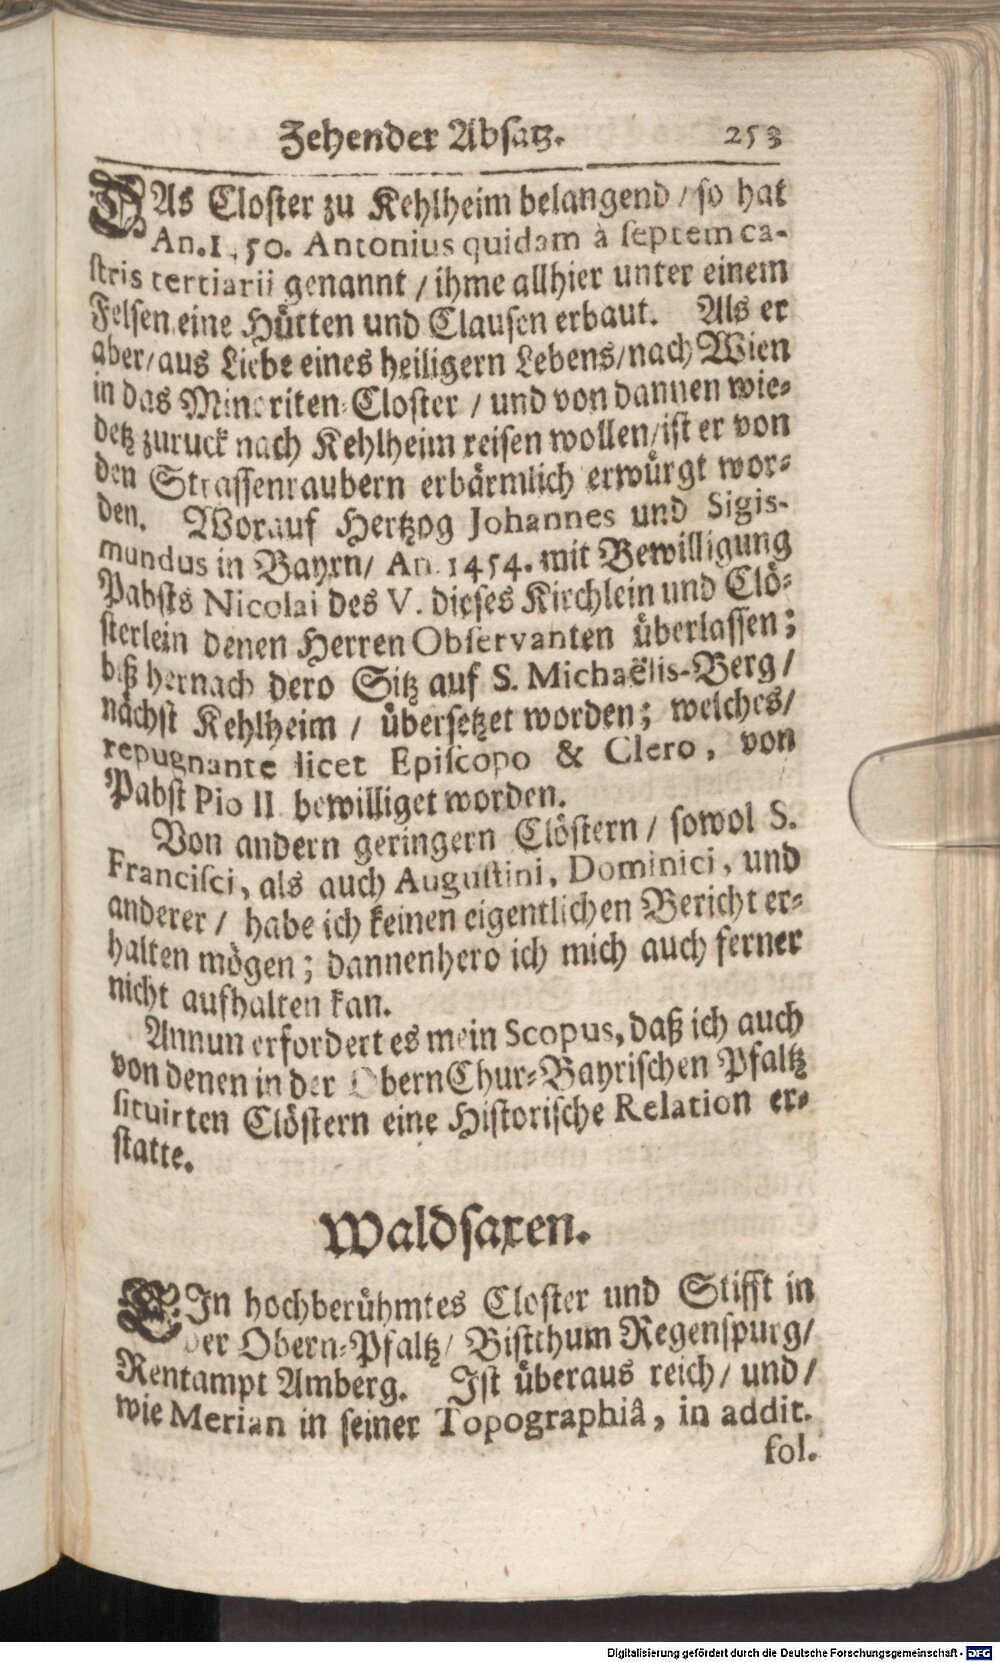 Zehender Absatz. 253
DAs Closter zu Kehlheim belangend / so hat
An. 1450. Antonius quidam à septem ca-
stris tertiarii genannt / ihme allhier unter einem
Felsen eine Hütten und Clausen erbaut. Als er
aber / aus Liebe eines heiligern Lebens / nach Wien
in das Minoriten-Closter / und von dannen wie-
detz zuruck nach Kehlheim reisen wollen / ist er von
den Strassenraubern erbärmlich erwürgt wor-
den. Worauf Hertzog Johannes und Sigis-
mundus in Bayrn / An. 1454. mit Bewilligung
Pabsts Nicolai des V. dieses Kirchlein und Clö-
sterlein denen Herren Observanten überlassen;
biß hernach dero Sitz auf S. Michaëlis-Berg /
nächst Kehlheim / übersetzet worden; welches /
repugnante licet Episcopo & Clero, von
Pabst Pio II. bewilliget worden.
Von andern geringern Clöstern / sowol S.
Francisci, als auch Augustini, Dominici, und
anderer / habe ich keinen eigentlichen Bericht er-
halten mögen; dannenhero ich mich auch ferner
nicht aufhalten kan.
Annun erfordert es mein Scopus, daß ich auch
von denen in der Obern Chur-Bayrischen Pfaltz
situirten Clöstern eine Historische Relation er-
statte.
Waldsaxen.
EIn hochberühmtes Closter und Stifft in
der Obern-Pfaltz / Bistthum Regenspurg /
Rentampt Amberg. Ist überaus reich / und /
wie Merian in seiner Topographiâ, in addit.
fol.
Digitalisierung gefördert durch die Deutsche Forschungsgemeinschaft - DFG